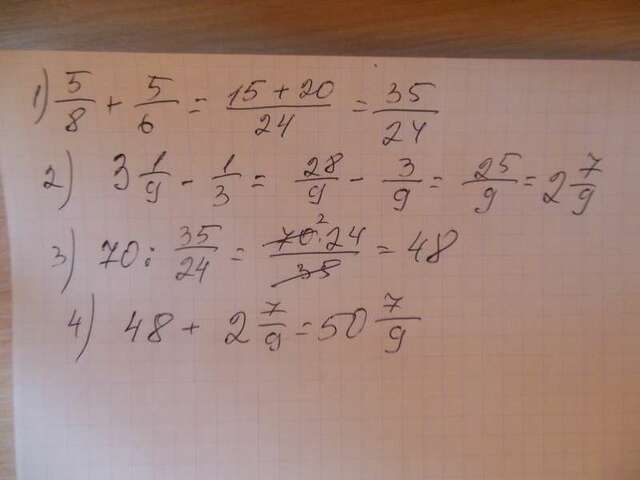 1) 5/8 + 5/6 = (15 + 20)/24 = 35/24
2) 3 1/9 - 1/3 = 28/9 - 3/9 = 25/9 = 2 7/9
3) 70 : 35/24 = (70² · 24)/35 = 48
4) 48 + 2 7/9 = 50 7/9